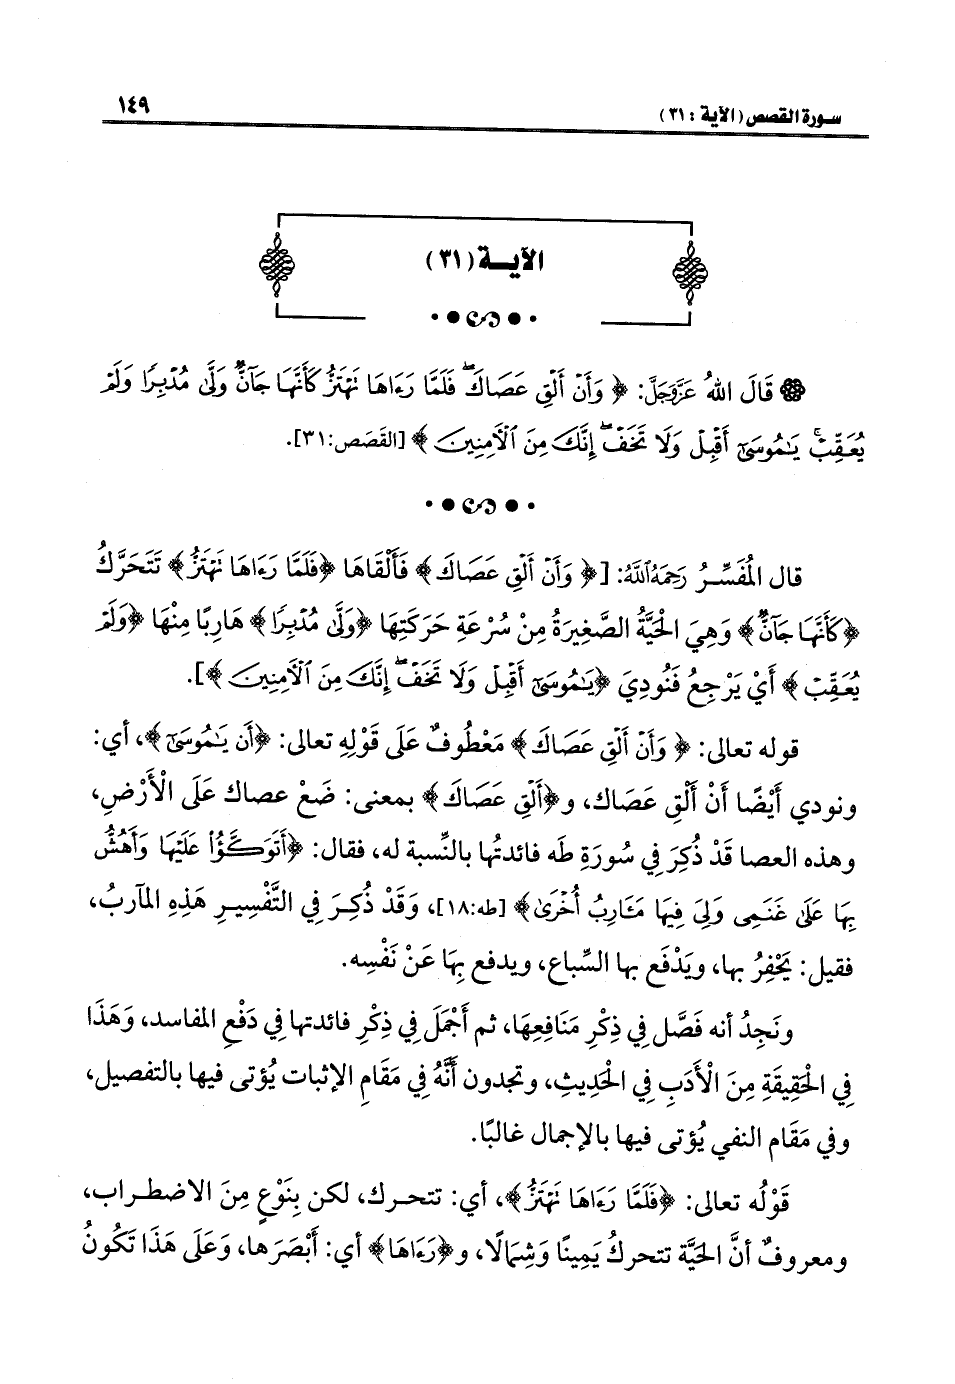 سورة القصص (الآية : ٣١) ١٤٩
الآيــة (٣١)
قَالَ اللهُ عَزَّوَجَلَّ: ﴿ وَأَنْ أَلْقِ عَصَاكَ ۖ فَلَمَّا رَءَاهَا تَهْتَزُّ كَأَنَّهَا جَآنٌّ وَلَّىٰ مُدْبِرًا وَلَمْ
يُعَقِّبْ ۚ يَـٰمُوسَىٰٓ أَقْبِلْ وَلَا تَخَفْ ۖ إِنَّكَ مِنَ ٱلْـَٔامِنِينَ ﴾ [القَصَص:٣١].
قال المُفَسِّـرُ رَحِمَهُ ٱللَّهُ: [﴿ وَأَنْ أَلْقِ عَصَاكَ ﴾ فَأَلْقَاهَا ﴿فَلَمَّا رَءَاهَا تَهْتَزُّ﴾ تَتَحَرَّكُ
﴿كَأَنَّهَا جَآنٌّ﴾ وَهِيَ الحَيَّةُ الصَّغِيرَةُ مِنْ سُرْعَةِ حَرَكَتِهَا ﴿وَلَّىٰ مُدْبِرًا﴾ هَارِبًا مِنْهَا ﴿وَلَمْ
يُعَقِّبْ﴾ أَيْ يَرْجِعُ فَنُودِيَ ﴿يَـٰمُوسَىٰٓ أَقْبِلْ وَلَا تَخَفْ ۖ إِنَّكَ مِنَ ٱلْـَٔامِنِينَ ﴾].
قوله تعالى: ﴿ وَأَنْ أَلْقِ عَصَاكَ﴾ مَعْطُوفٌ عَلَى قَوْلِهِ تعالى: ﴿أَن يَـٰمُوسَىٰٓ ﴾، أي:
ونودي أَيْضًا أَنْ أَلْقِ عَصَاك، و﴿أَلْقِ عَصَاكَ﴾ بمعنى: ضَعْ عصاك عَلَى الْأَرْضِ،
وهذه العصا قَدْ ذُكِرَ فِي سُورَةِ طَه فائدتُها بالنِّسبة له، فقال: ﴿أَتَوَكَّؤُا۟ عَلَيْهَا وَأَهُشُّ
بِهَا عَلَىٰ غَنَمِى وَلِىَ فِيهَا مَـَٔارِبُ أُخْرَىٰ﴾ [طه:١٨]، وَقَدْ ذُكِـرَ فِي التَّفْسِيـرِ هَذِهِ المآربُ،
فقيل: يَحْفِرُ بها، ويَدْفَع بها السِّباع، ويدفع بِهَا عَنْ نَفْسِه.
ونَجِدُ أنه فَصَّل فِي ذِكْرِ مَنَافِعِهَا، ثم أَجْمَلَ فِي ذِكْرِ فائدتها فِي دَفْعِ المفاسد، وَهَذَا
فِي الْحَقِيقَةِ مِنَ الْأَدَبِ فِي الْحَدِيثِ، وتجدون أَنَّهُ فِي مَقَامِ الإثبات يُؤتى فيها بالتفصيل،
وفي مَقَام النفي يُؤتى فيها بالإجمال غالبًا.
قَوْلُه تعالى: ﴿فَلَمَّا رَءَاهَا تَهْتَزُّ﴾، أي: تتحرك، لكن بِنَوْعٍ مِنَ الاضطراب،
ومعروفٌ أنَّ الحَيَّة تتحركُ يَمِينًا وَشِمَالًا، و﴿رَءَاهَا﴾ أي: أَبْصَرَها، وَعَلَى هَذَا تَكُونُ